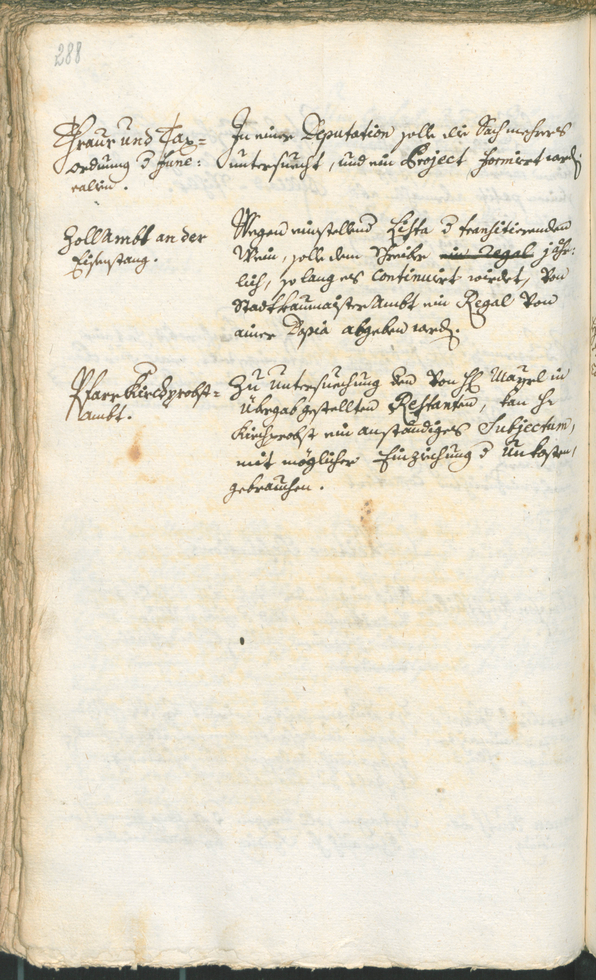 288
Traur und Tax=
ordnung d Fune:
ralien.
In einer Deputation solle die Sach mehrers
untersuecht, und ein Project formirt werd.
Zoll Ambt an der
Eisenstang.
Wegen einstellend Lista d transitirenden
Wein, solle dem Schreiber ein Regal jähr:
lich, so lang es continuirt wirdet, von
Stadt Kaumaister Ambt ein Regal von
ainer Dopia abgeben werd.
Pfarr Kirchprobst=
Ambt.
Zu untersuechung den von H Mayrl in
Übergab gestellten Restanten, kan H
Kirchprobst ein anständiges Subjectum,
mit möglicher Einziehung d Unkosten,
gebrauchen.